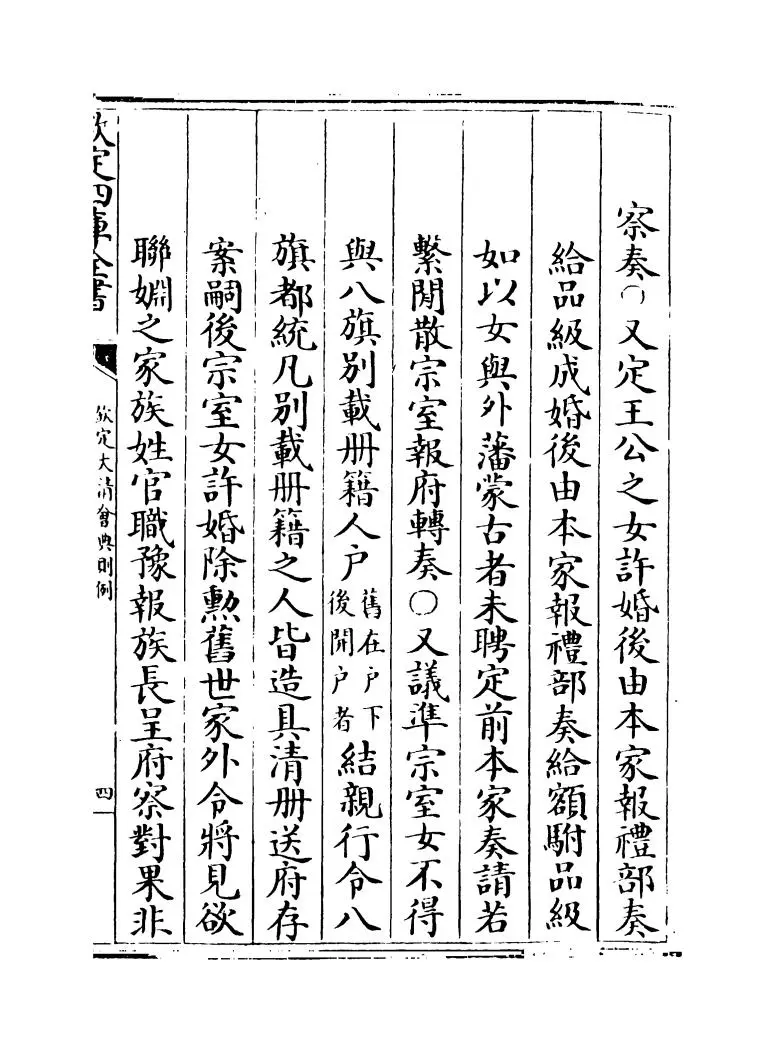 察奏〇又定王公之女許婚後由本家報禮部奏
給品級成婚後由本家報禮部奏給額駙品級
如以女與外藩蒙古者未聘定前本家奏請若
繫閒散宗室報府轉奏〇又議準宗室女不得
與八旗別載冊籍人戶舊在戶下後開戶者結親行令八
旗都統凡別載冊籍之人皆造具清冊送府存
案嗣後宗室女許婚除勲舊世家外令將見欲
聯婣之家族姓官職豫報族長呈府察對果非
欽定四庫全書
欽定大清會典則例
四